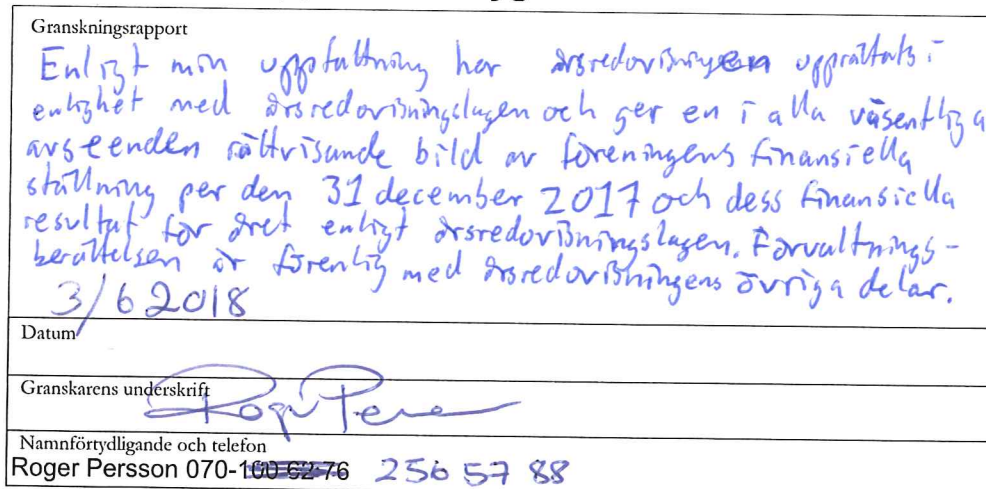 Granskningsrapport
Enligt min uppfattning har årsredovisningen upprättats i
enlighet med årsredovisningslagen och ger en i alla väsentliga
avseenden rättvisande bild av föreningens finansiella
ställning per den 31 december 2017 och dess finansiella
resultat för året enligt årsredovisningslagen. Förvaltnings-
berättelsen är förenlig med årsredovisningens övriga delar.
3/6 2018
Datum
Granskarens underskrift
Roger Persson
Namnförtydligande och telefon
Roger Persson 070-100 62 76 256 57 88